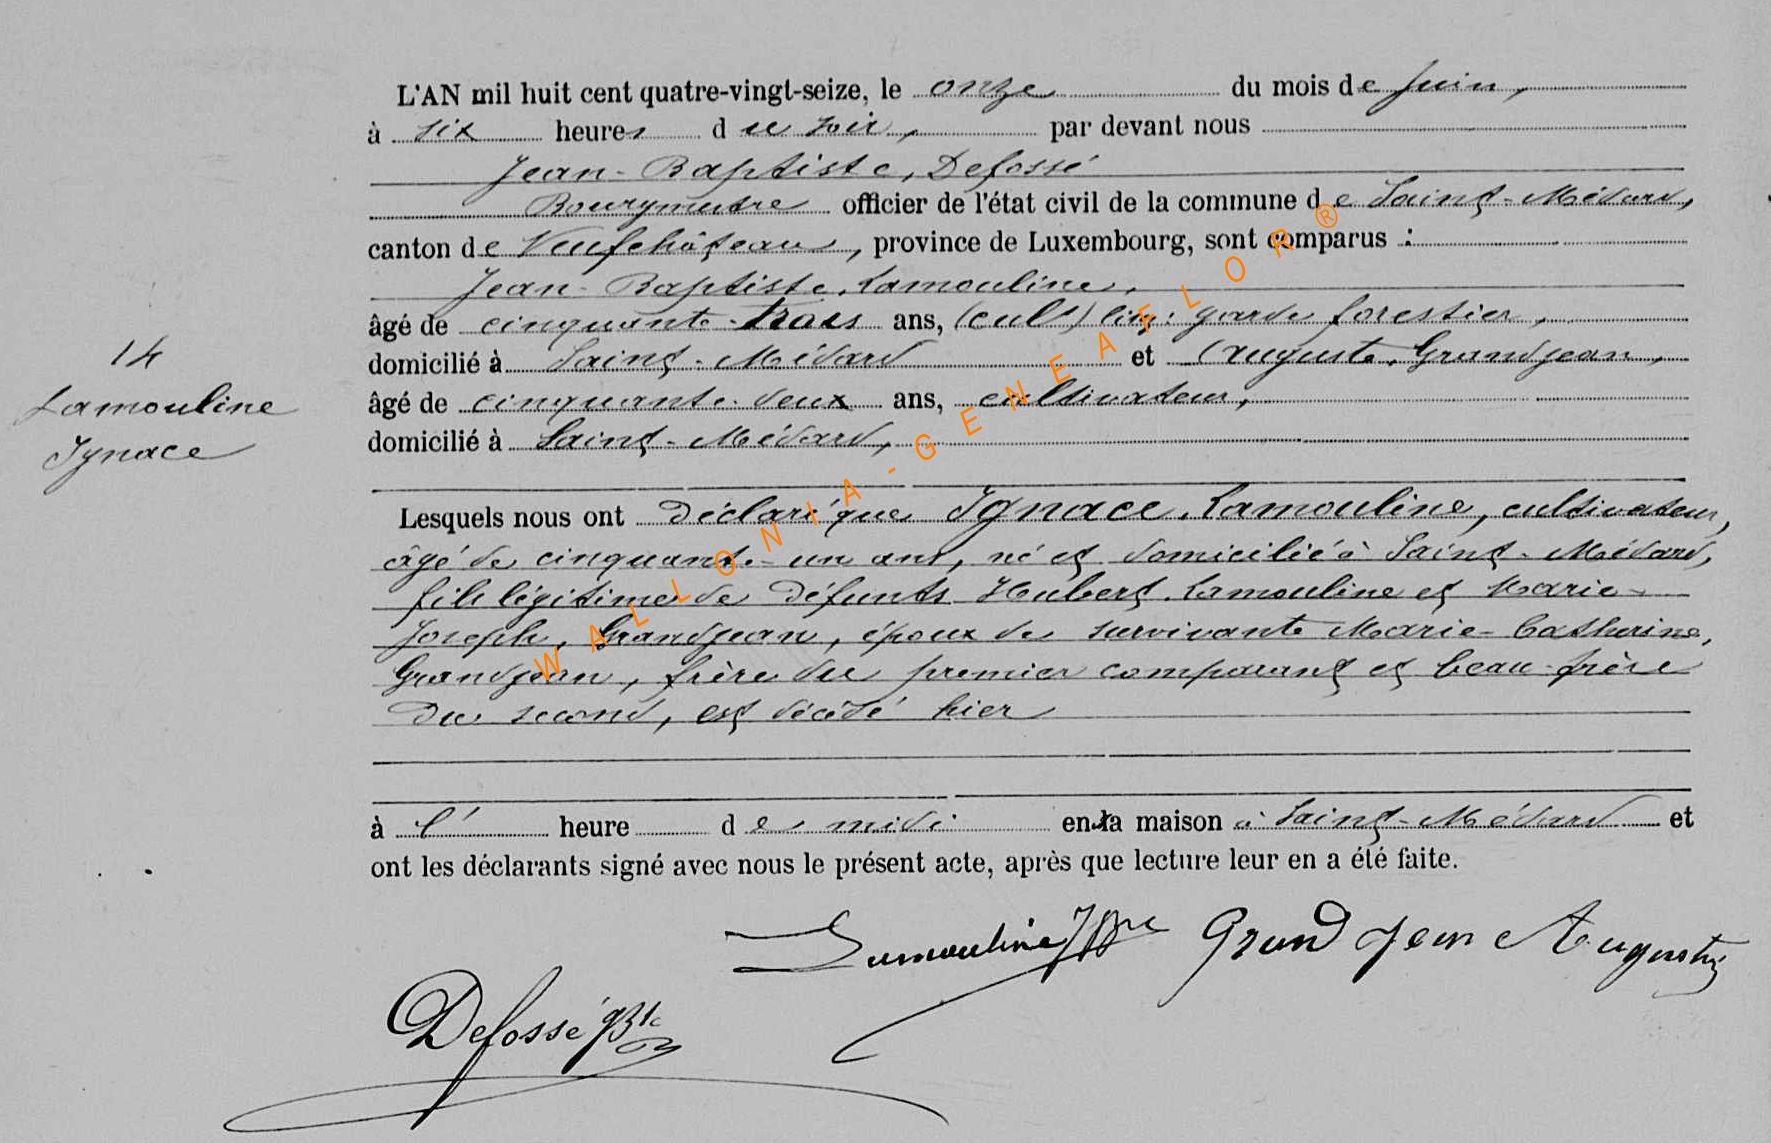 L'AN mil huit cent quatre-vingt-seize, le onze du mois de Juin,
à six heures du soir, par devant nous
Jean-Baptiste, Defossé
Bourgmestre officier de l'état civil de la commune de Saint-Médard,
canton de Neufchâteau, province de Luxembourg, sont comparus :
Jean-Baptiste, Lamouline,
âgé de cinquante-trois ans, (cult) garde forestier,
domicilié à Saint-Médard et Auguste, Grandjean,
âgé de cinquante-deux ans, cultivateur,
domicilié à Saint-Médard,
14
Lamouline
Ignace
Lesquels nous ont déclaré que Ignace, Lamouline, cultivateur,
âgé de cinquante-un ans, né et domicilié à Saint-Médard,
fils légitime de défunts Hubert, Lamouline et Marie-
Joseph, Grandjean, époux de survivante Marie-Catherine,
Grandjean, frère du premier comparant et beau-frère
du second, est décédé hier
à l' heure de midi en sa maison à Saint-Médard et
ont les déclarants signé avec nous le présent acte, après que lecture leur en a été faite.
Lamouline JBte Grandjean Auguste
Defossé JBte
WALLONIA-GENEAFLOR®